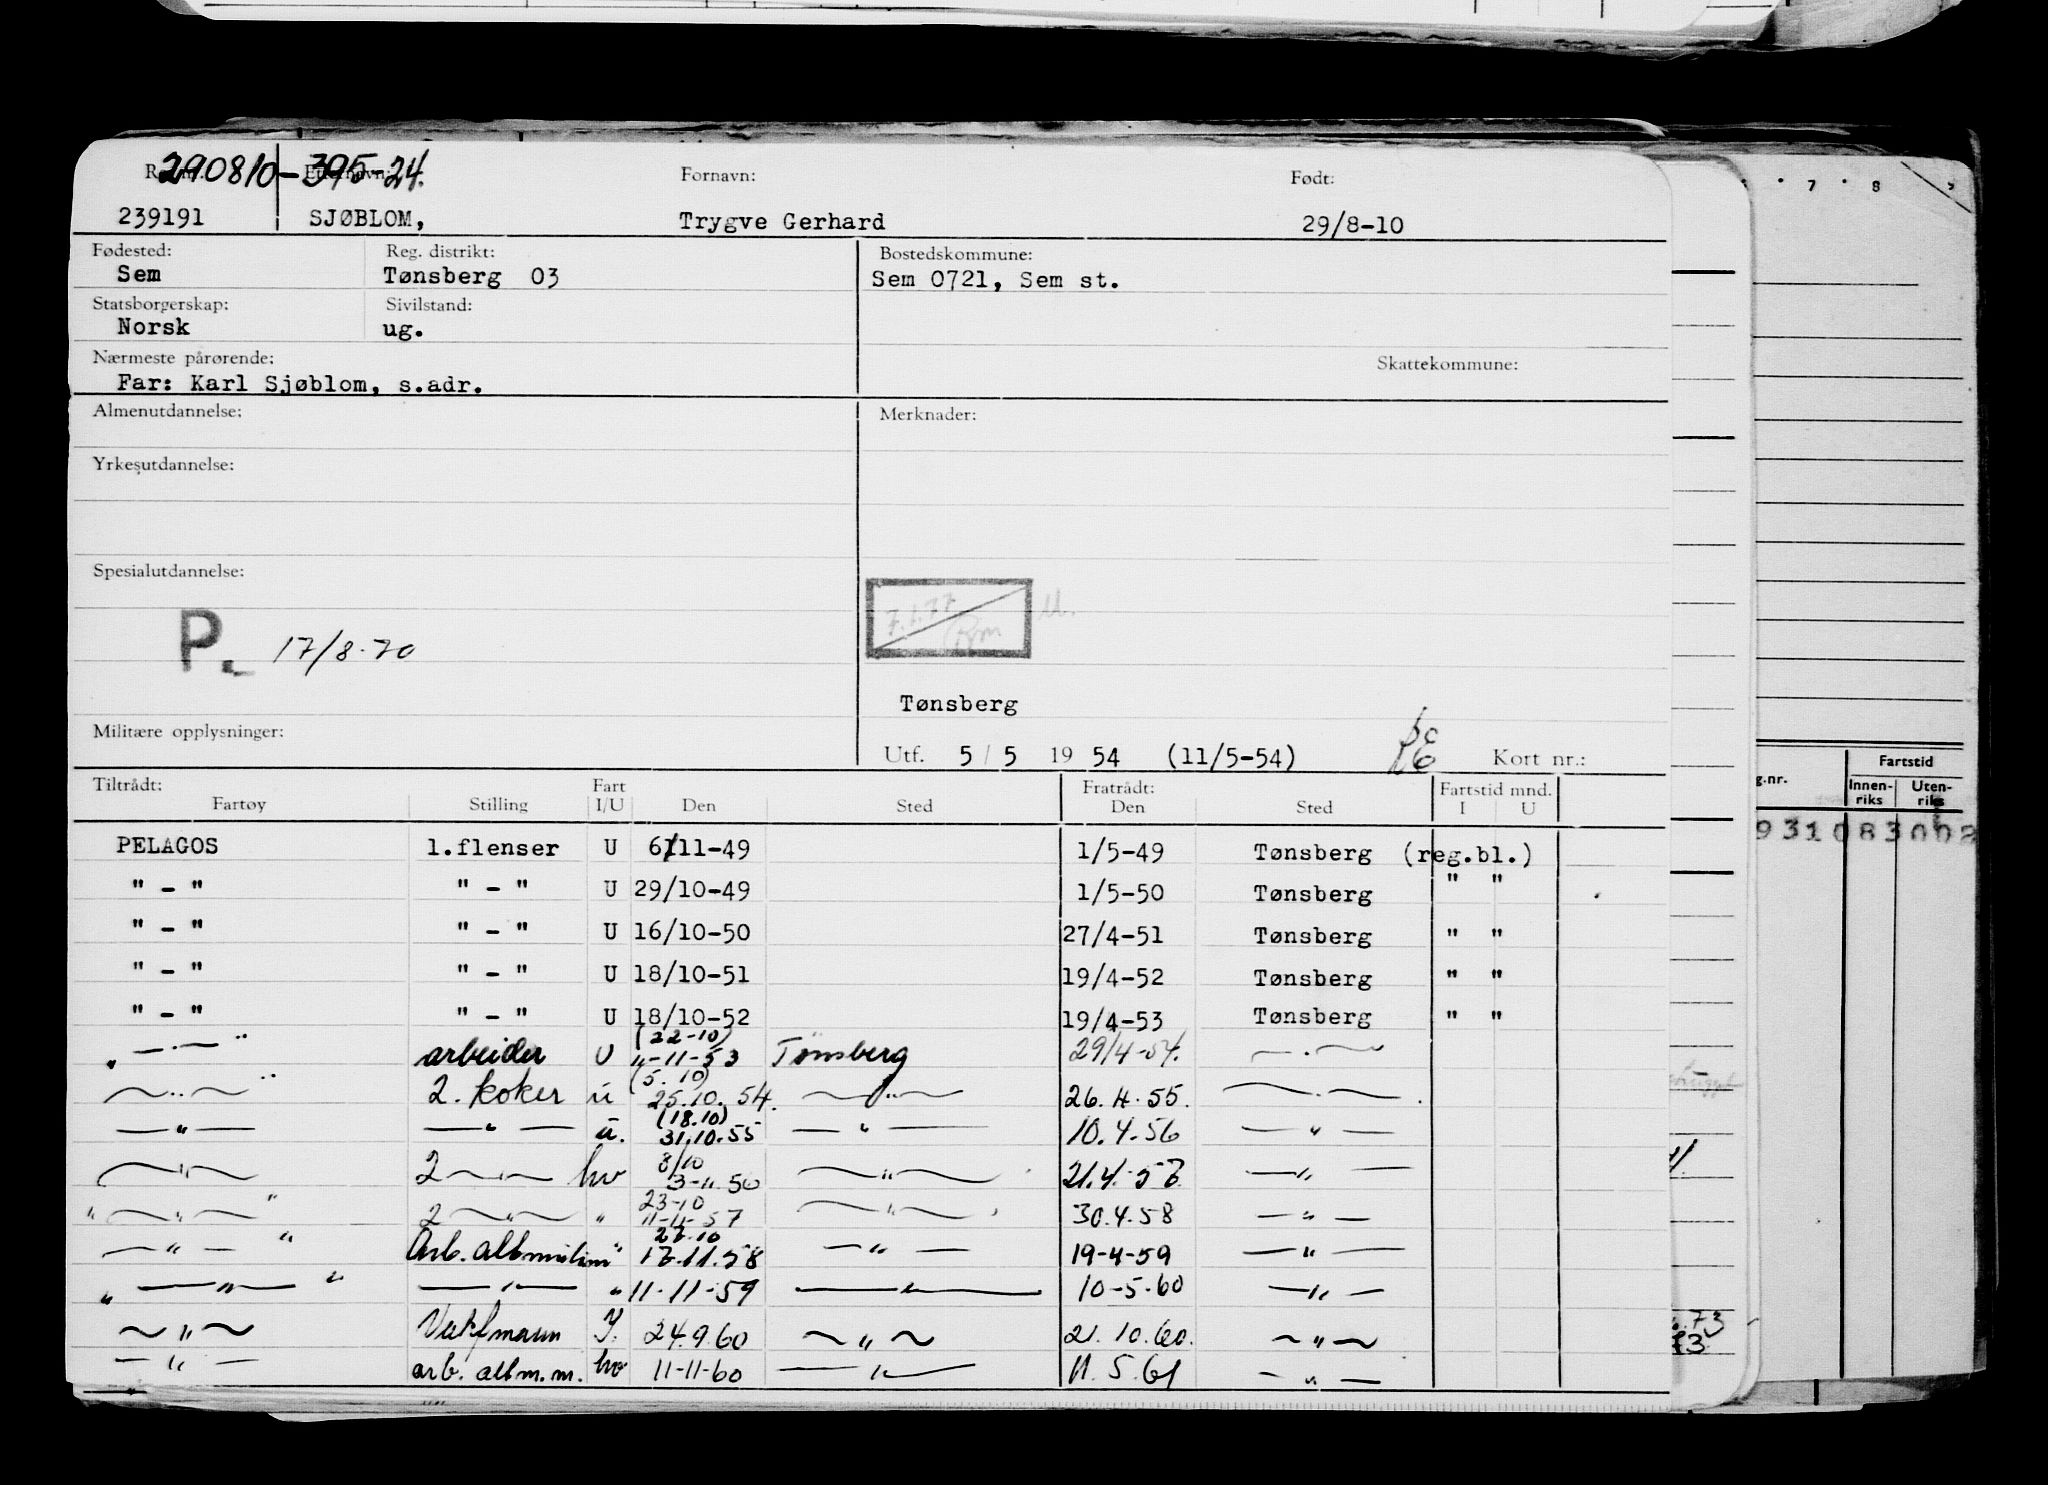 290810-395-24.
Fornavn: Født:
239191 SJØBLOM, Trygve Gerhard 29/8-10
Fødested: Reg. distrikt: Bostedskommune:
Sem Tønsberg 03 Sem 0721, Sem st.
Statsborgerskap: Sivilstand:
Norsk ug.
Nærmeste pårørende: Skattekommune:
Far: Karl Sjøblom, s.adr.
Almenutdannelse: Merknader:
Yrkesutdannelse:
Spesialutdannelse:
7.1.77
P. 17/8-70
Tønsberg
Militære opplysninger:
Utf. 5 / 5 19 54 (11/5-54) Kort nr.:
Tiltrådt: Fart Fratrådt: Fartstid mnd.
Fartøy Stilling I/U Den Sted Den Sted I U
PELAGOS 1.flenser U 6/11-49 1/5-49 Tønsberg (reg.bl.)
" - " " - " U 29/10-49 1/5-50 Tønsberg " "
" - " " - " U 16/10-50 27/4-51 Tønsberg " "
" - " " - " U 18/10-51 19/4-52 Tønsberg " "
" - " " - " U 18/10-52 19/4-53 Tønsberg " "
(22-10)
" — " arbeider U "-11-53 Tønsberg 29/4-54. — " —
(5.10)
— " — 2. koker u 25.10.54. — " — 26.4.55. — " —
(18.10)
— " — — " — u. 31.10.55 — " — 10.4.56 — " —
8/10
— " — 2 — " — hv 3-11.56 — " — 21.4.57 — " —
23-10
" — " — " 2 — " — " 11-11-57 — " — 30.4.58 — " —
27.10
— " — " Arb. " 17.11.58 — " — 19-4-59 — " —
" — " — " — " — " 11-11-59 — " — 10-5-60 — " —
— " — Vaktmann I. 24.9.60 — " — 21.10.60. — " —
— " — arb. alm.m. hv 11-11-60 — " — 11.5.61 — " —
7 8 9
g.nr. Fartstid
Innen-riks Uten-riks
931083002
73